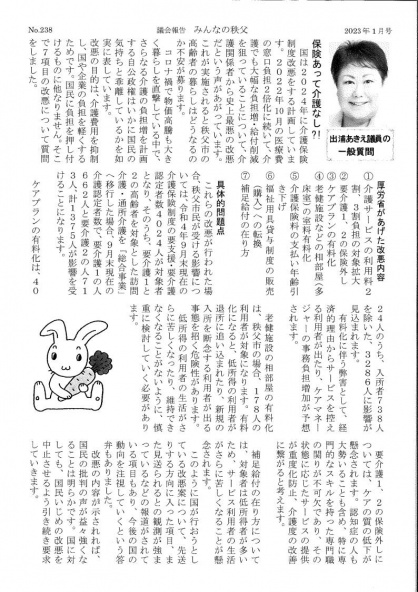 No.238
議会報告 みんなの秩父
2023年1月号
出浦あきえ議員の
一般質問
保険あって介護なし?!
国は2024年に介護保険
制度改悪を計画していま
す。2022年10月の医療費
窓口負担2倍化に続いて、介
護でも大幅な負担増・給付削減
を狙っていることについて、介
護関係者から史上最悪の改悪
だという声があがっています。
これが実施されると秩父市の
高齢者の暮らしはどうなるの
か不安が募ります。
コロナ禍で物価高騰も大き
く暮らしを直撃している中で、
さらなる介護の負担増を計画
する自公政権はいかに国民の
気持ちと乖離しているかを如
実に表しています。
改悪の目的は、介護費用を抑制
し、国や企業の負担を軽くする
ためです。国民に負担を押し付
けるものに他なりません。そこ
で7項目の改悪について質問
をしました。
厚労省があげた改悪内容
①介護サービスの利用料2
割、3割負担の対象拡大
②要介護1、2の保険外し
③ケアプランの有料化
④老健施設などの相部屋(多
床室)の室料有料化
⑤介護保険料の支払い年齢引
き下げ
⑥福祉用具貸与制度の販売
(購入)への転換
⑦補足給付の在り方
具体的問題点
これらの改悪が行われた場
合、秩父市民が受ける影響につ
いては、令和4年9月末現在の
介護保険制度の要支援・要介護
認定者数4024人が対象者
となり、そのうち、要介護1と
2の高齢者を対象とした訪問
介護・通所介護を「総合事業」
へ移行した場合、9月末現在の
介護認定者数の要介護1の人
662人と要介護2の人71
3人、計1375人が影響を受
けることになります。
ケアプランの有料化は、40
24人のうち、入所者738人
を除いた、3286人に影響が
見込まれます。
有料化に伴う弊害として、経
済的理由からサービスを控え
る利用者が出たり、ケアマネー
ジャーの事務負担増加が予想
されます。
老健施設の相部屋の有料化
は、秩父市の場合、178人の
利用者が対象になります。有料
化になると、低所得の利用者が
退所に追い込まれたり、新規の
入所を断念する利用者が出る
事態を招く危険性があります。
低所得の利用者の生活がさ
らに苦しくなったり、維持でき
なくなることがないように、慎
重に検討していく必要があり
ます。
要介護1、2の保険外しに
ついては、ケアの質の低下が
懸念されます。認知症の人も
大勢いることも含め、特に専
門的なスキルを持った専門職
の関りが不可欠であり、その
状態に応じたサービスの提供
が重度化防止、介護度の改善
に繋がると考えます。
補足給付の在り方について
は、対象者は低所得者が多い
ため、サービス利用者の生活
がさらに苦しくなることが懸
念されます。
このように国が行おうとし
ている改悪案について、先送
りする方向に入った項目、ま
た見送られるとの観測が強ま
っているなどの報道がされて
いる項目もあり、今後の国の
動向を注視していくという答
弁もありました。
改悪の内容が示されれば、
国民の批判の声が益々強くな
ることは明らかです。国に対
しても、国民いじめの改悪を
中止させるよう引き続き要求